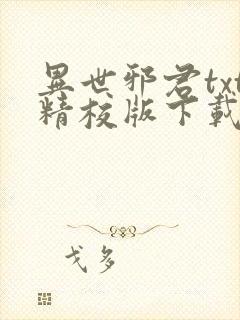 異世邪君txt
精校版下載
戈多